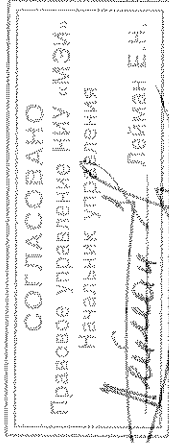 СОГЛАСОВАНО
Правовое управление НИУ «МЭИ»
Начальник управления
Лейман Е.Н.